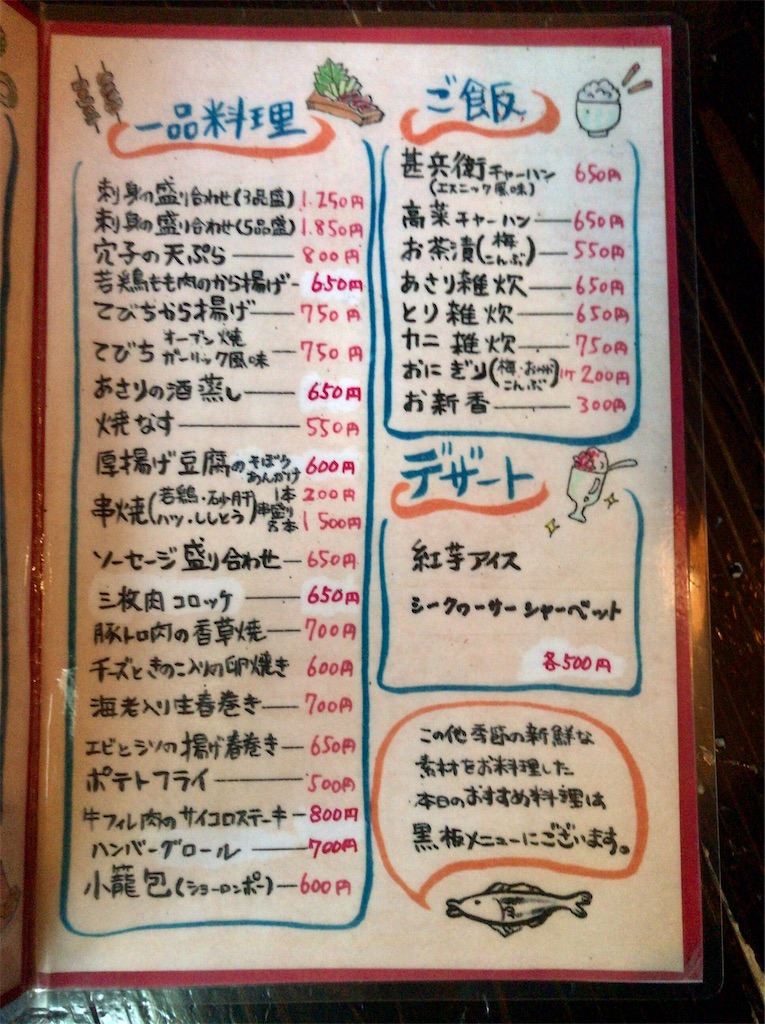 一品料理
刺身の盛り合わせ(3品盛) 1.250円
刺身の盛り合わせ(5品盛) 1.850円
穴子の天ぷら 800円
若鶏もも肉のから揚げ 650円
てびちから揚げ 750円
てびち オーブン焼 ガーリック風味 750円
あさりの酒蒸し 650円
焼なす 550円
厚揚げ豆腐のそぼろあんかけ 600円
串焼(若鶏・砂肝 1本 200円
ハツ・ししとう) 串盛り 5本 1500円
ソーセージ盛り合わせ 650円
三枚肉コロッケ 650円
豚トロ肉の香草焼 700円
チーズときのこ入りの卵焼き 600円
海老入り生春巻き 700円
エビとシソの揚げ春巻き 650円
ポテトフライ 500円
牛フィレ肉のサイコロステーキ 800円
ハンバーグロール 700円
小籠包(ショーロンポー) 600円
ご飯
甚兵衛チャーハン 650円
(エスニック風味)
高菜チャーハン 650円
お茶漬(梅 こんぶ) 550円
あさり雑炊 650円
とり雑炊 650円
カニ雑炊 750円
おにぎり(梅・おかか こんぶ) 1ケ 200円
お新香 300円
デザート
紅芋アイス
シークワーサーシャーベット
各500円
この他季節の新鮮な
素材をお料理した
本日のおすすめ料理は
黒板メニューにございます。